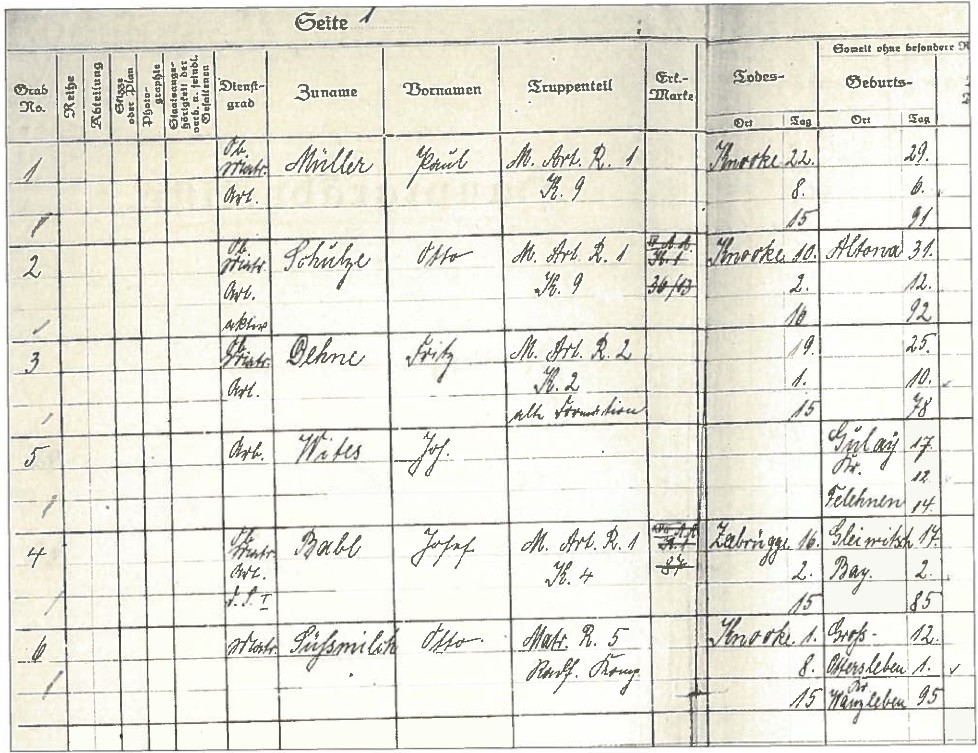 Seite 1
Soweit ohne besondere
Grab No. Reihe Abteilung Skizze oder Plan Photographie Staatsangehörigkeit der verb. u. feindl. Gefallenen Dienstgrad Zuname Vornamen Truppenteil Erk.-Marke Todes- Geburts-
Ort Tag Ort Tag
1 Ob. Matr. Müller Paul M. Art. R. 1 Knocke 22. 29.
Art. K. 9 8. 6.
15 91
2 Ob. Matr. Schulze Otto M. Art. R. 1 Knocke 10. Altona 31.
Art. K. 9 36/13 2. 12.
aktiv 16 92
3 Ob. Matr. Dehne Fritz M. Art. R. 2 19. 25.
Art. K. 2 1. 10.
alte Formation 15 78
5 Arb. Wites Joh. Gulay 17
Kr. 12
Felehnen 14.
4 Ob. Matr. Babl Josef M. Art. R. 1 Zebrügge 16. Gleiwitsch 17.
Art. K. 4 87 2. Bay. 2.
d. S. I 15 85
6 Matr. Süssmilch Otto Matr. R. 5 Knocke 1. Gross- 12.
Radf. Komp. 8. Ostersleben 1.
15 Kr. Wanzleben 95